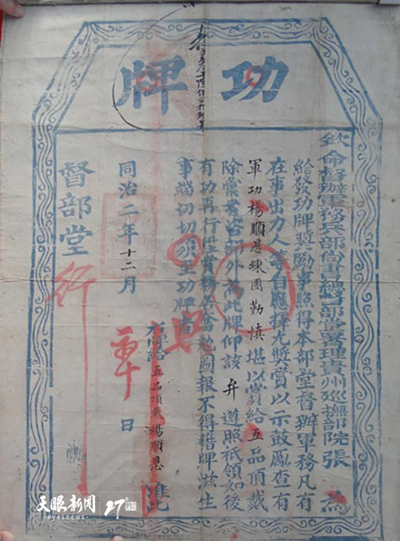 功牌
欽命督辦軍務兵部尚書總督部堂署理貴州巡撫部院張 為
給發功牌獎勵事照得本部堂督辦軍務凡有
在事出力人等自應擇尤獎賞以示鼓勵查有
軍功楊順恩練團勤慎堪以賞給五品頂戴
除彙案咨部外為此牌仰該弁遵照祗領如後
有功再行
圖報不得藉牌滋生
事端切切須至功牌者
右給五品頂戴楊順恩
同治二年十二月 日
督部堂
行
天眼新聞
eyesnews